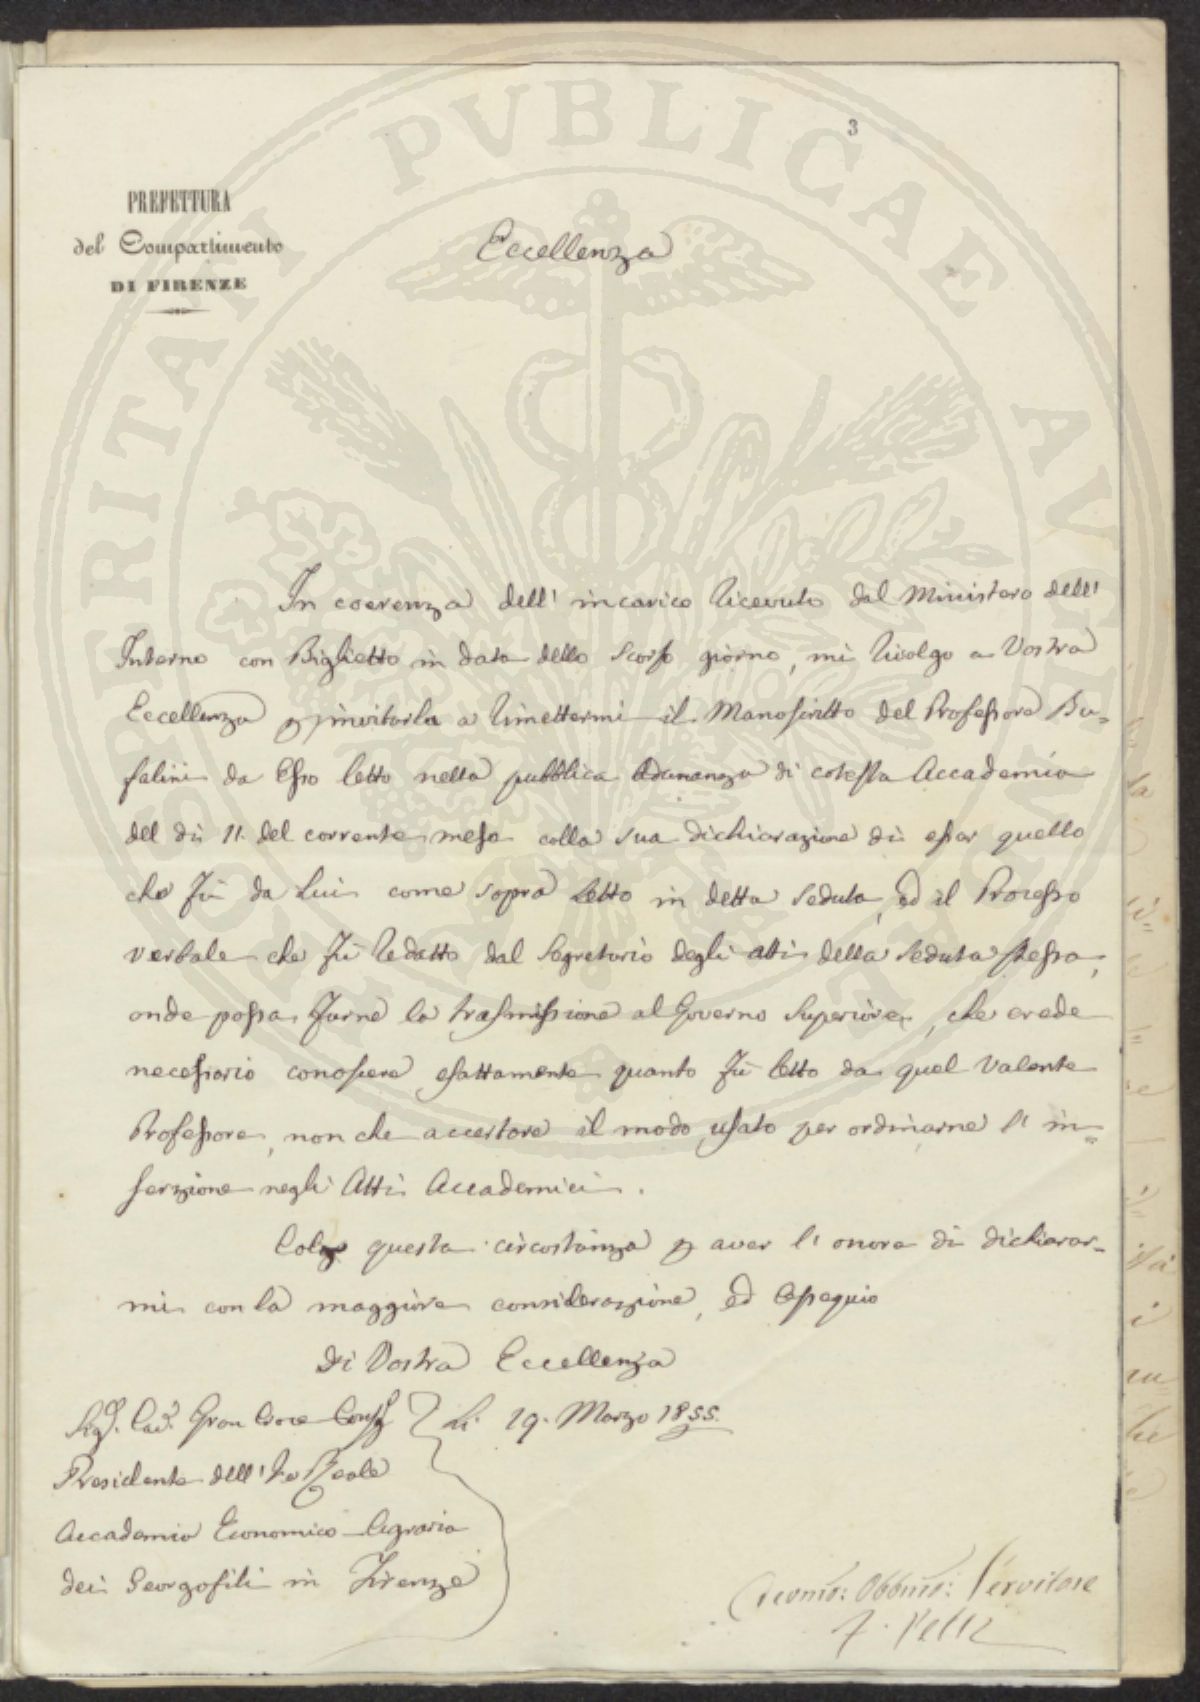 3
PREFETTURA
del Compartimento
DI FIRENZE
Eccellenza
In coerenza dell' incarico ricevuto dal Ministero dell'
Interno con Biglietto in data dello scorso giorno, mi rivolgo a Vostra
Eccellenza p invitarla a rimettermi il Manoscritto del Professore Bu=
falini da Esso letto nella pubblica Adunanza di cotesta Accademia
del dì 11. del corrente mese colla sua dichiarazione di esser quello
che fù da Lui come sopra letto in detta Seduta, ed il Processo
verbale che fù redatto dal Segretario degli atti della Seduta stessa,
onde possa farne la trasmissione al Governo Superiore, che crede
necessario conoscere esattamente quanto fù letto da quel valente
Professore, non che accertare il modo usato per ordinarne l' in=
serzione negli Atti Accademici.
Colgo questa circostanza p aver l' onore di dichiarar=
mi con la maggiore considerazione, ed Ossequio
Di Vostra Eccellenza
Sig. Cav. Gran Croce Li 19. Marzo 1855.
Presidente dell' I. e Reale
Accademia Economico Agraria
dei Georgofili in Firenze
Devmo: Obbmo: Servitore
PROSPERITATI PVBLICAE AVGENDAE